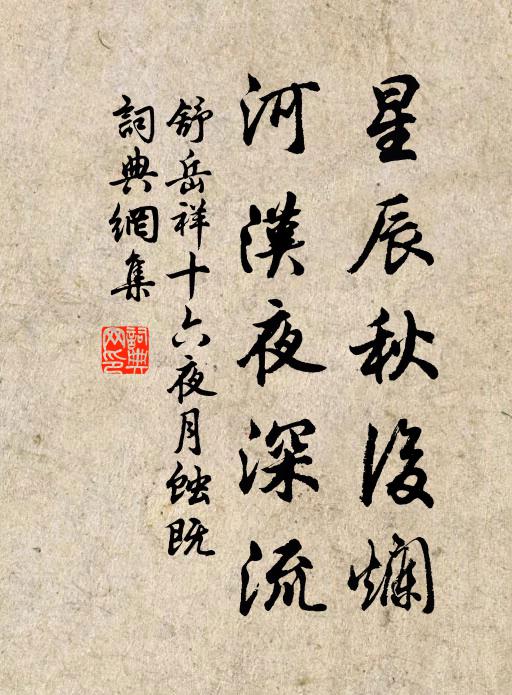 星辰秋後爛
河漢夜深流
舒岳祥十六夜月蝕既
詞典網集
詞典网印